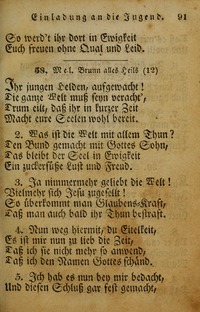 Einladung an die Jugend. 91
So werd't ihr dort in Ewigkeit
Euch freuen ohne Qual und Leid.
58. Mel. Brunn alles Heils (12)
Ihr jungen Helden, aufgewacht!
Die ganze Welt muß seyn veracht',
Drum eilt, daß ihr in kurzer Zeit
Macht eure Seelen wohl bereit.
2. Was ist die Welt mit allem Thun?
Den Bund gemacht mit Gottes Sohn,
Das bleibt der Seel in Ewigkeit
Ein zuckersüße Lust und Freud.
3. Ja nimmermehr geliebt die Welt!
Vielmehr sich Jesu zugesellt!
So überkommt man Glaubens-Kraft,
Daß man auch bald ihr Thun bestraft.
4. Nun weg hiermit, du Eitelkeit,
Es ist mir nun zu lieb die Zeit,
Daß ich sie nicht mehr so anwend,
Daß ich den Namen Gottes schänd.
5. Ich hab es nun bey mir bedacht,
Und diesen Schluß gar fest gemacht,